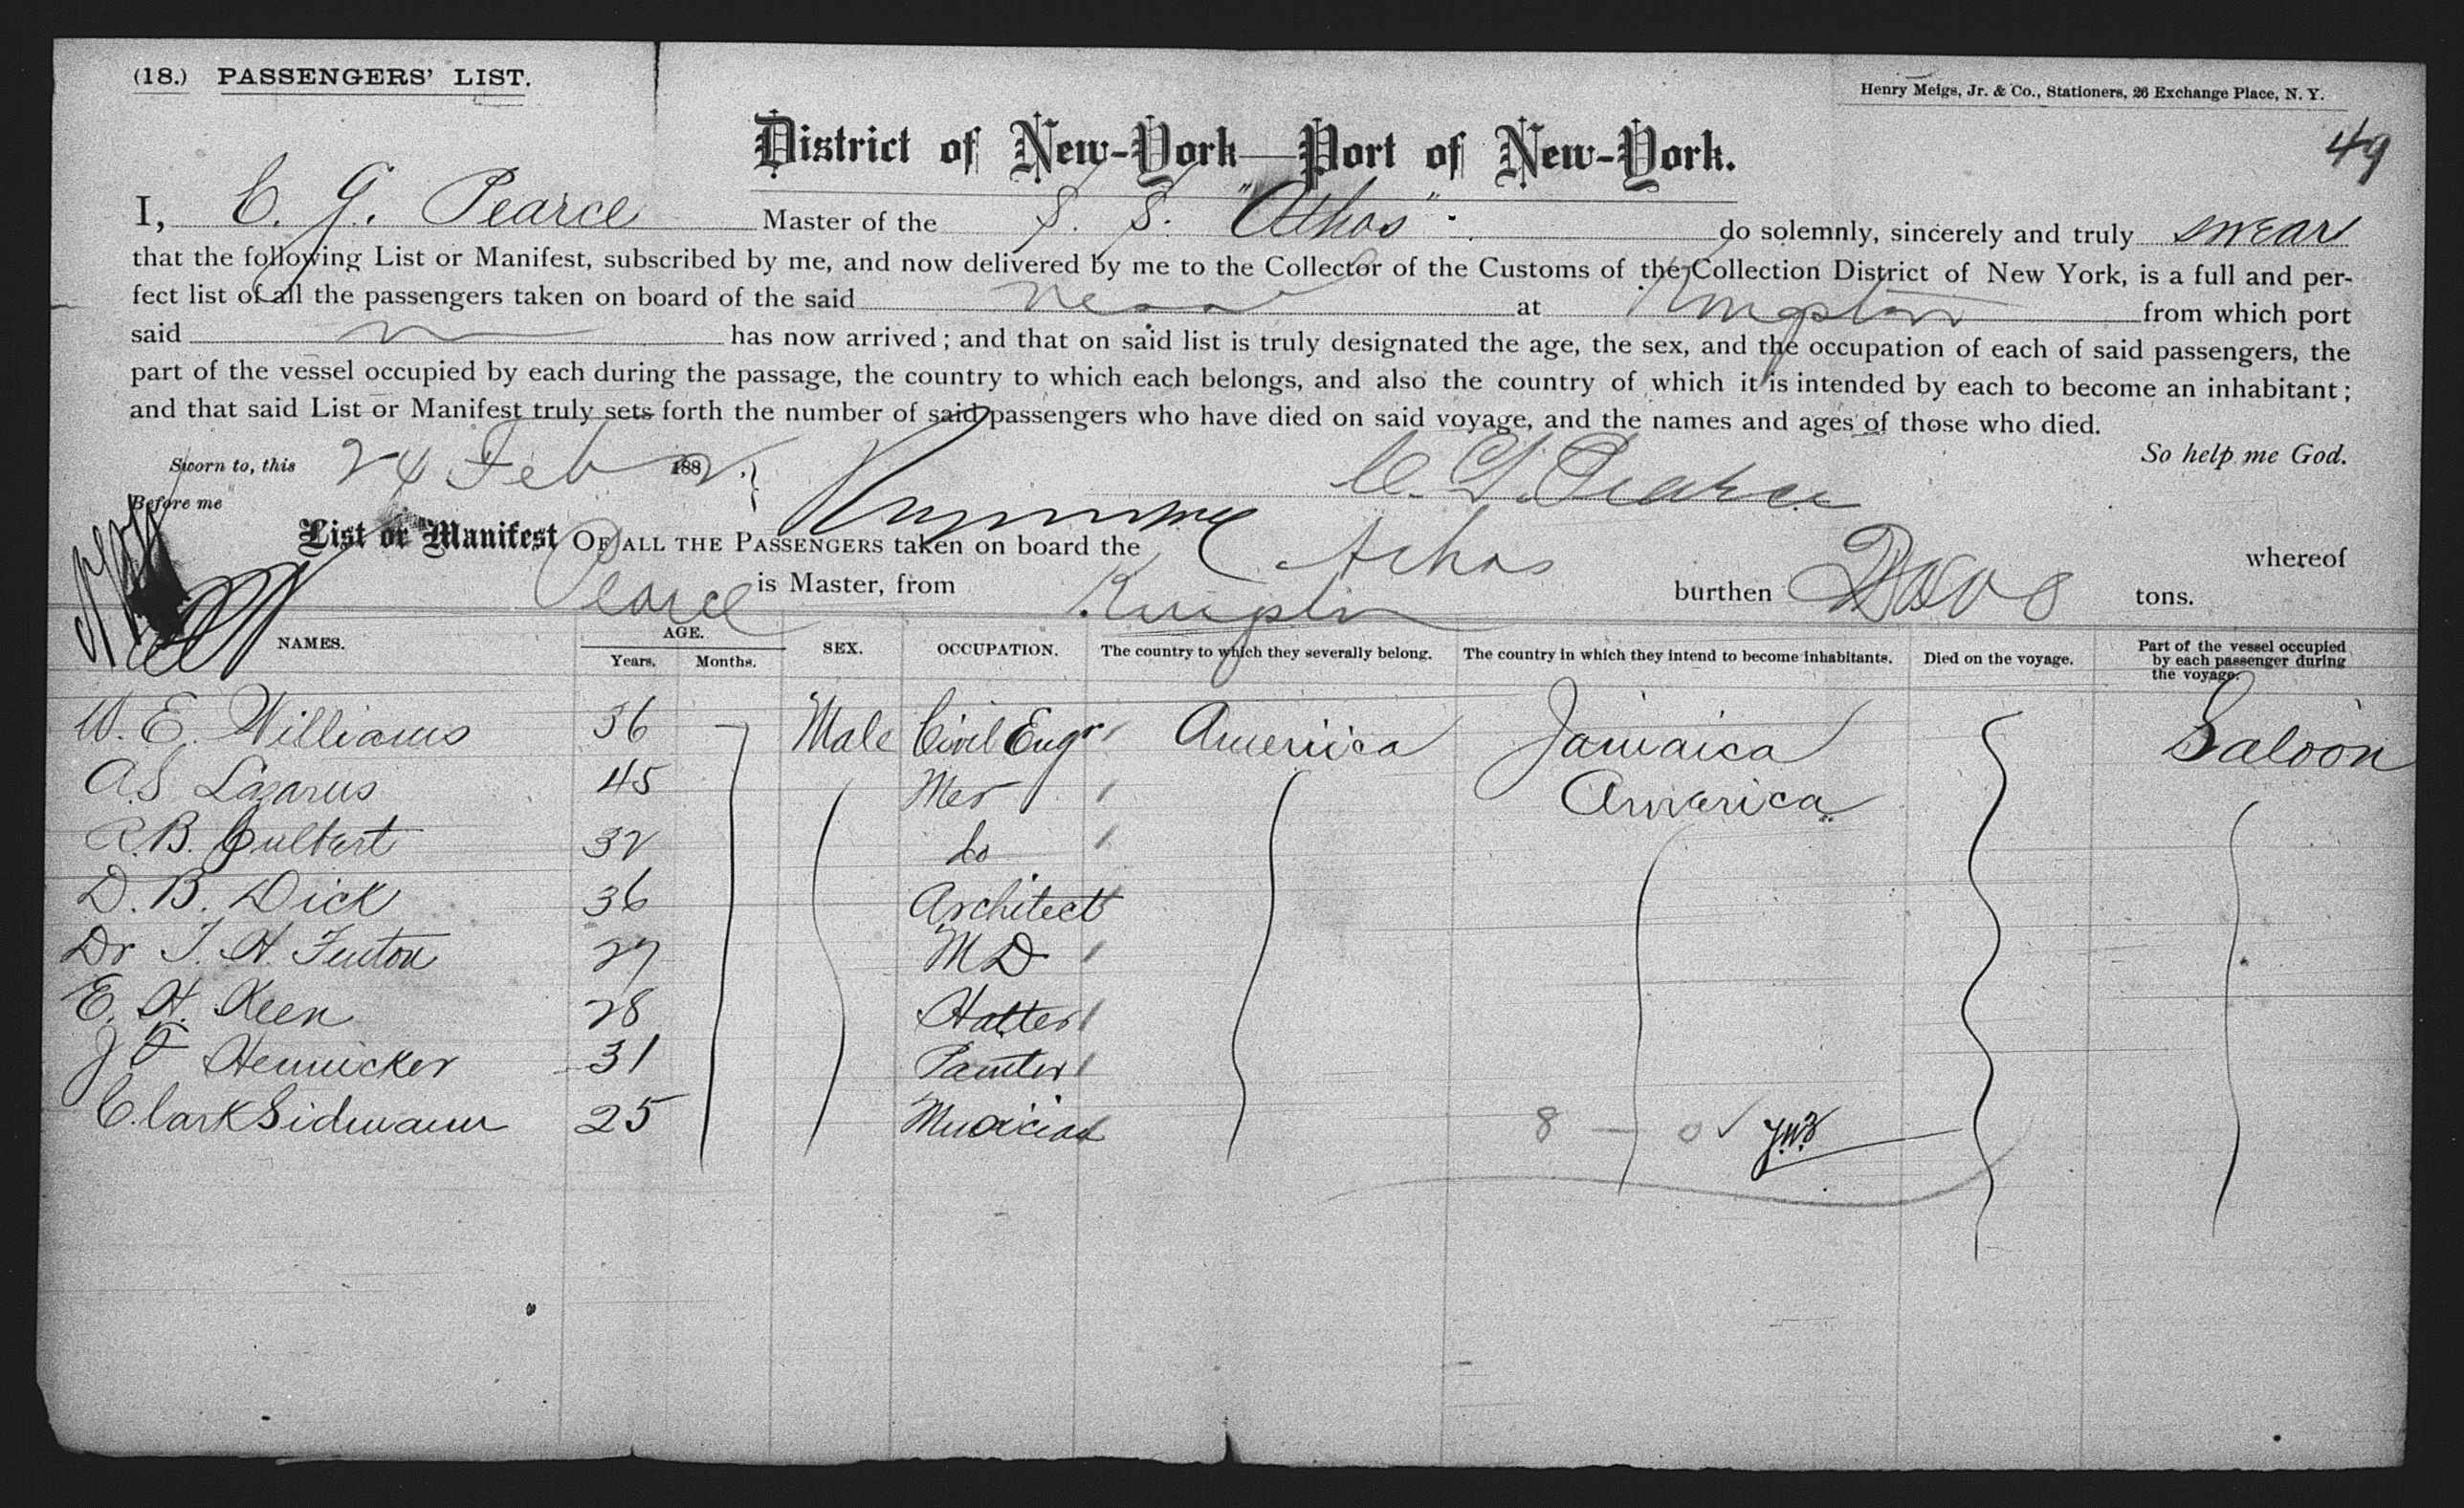 (18.) PASSENGERS' LIST.
Henry Meigs, Jr. & Co., Stationers, 26 Exchange Place, N. Y.
49
District of New-York—Port of New-York.
I, C. G. Pearce Master of the S. S. "Athos" do solemnly, sincerely and truly swear
that the following List or Manifest, subscribed by me, and now delivered by me to the Collector of the Customs of the Collection District of New York, is a full and per-
fect list of all the passengers taken on board of the said at Kingston from which port
said has now arrived; and that on said list is truly designated the age, the sex, and the occupation of each of said passengers, the
part of the vessel occupied by each during the passage, the country to which each belongs, and also the country of which it is intended by each to become an inhabitant;
and that said List or Manifest truly sets forth the number of said passengers who have died on said voyage, and the names and ages of those who died.
Sworn to, this 24 Feb 1882. C. G. Pearce So help me God.
Before me
List or Manifest OF ALL THE PASSENGERS taken on board the Athos whereof
Pearce is Master, from Kingston burthen tons.
NAMES. AGE. Years. Months. SEX. OCCUPATION. The country to which they severally belong. The country in which they intend to become inhabitants. Died on the voyage. Part of the vessel occupied by each passenger during the voyage.
W. E. Williams 36 Male Civil Engr America Jamaica Saloon
A. S. Lazarus 45 Mer America
R. B. Culbert 32 do
D. B. Dick 36 Architect
Dr T. H. Fenton 27 M D
E. H. Keen 28 Hatter
J F Hennicker 31 Painter
Clark Sidmann 25 Musician 8 — 0 ✓